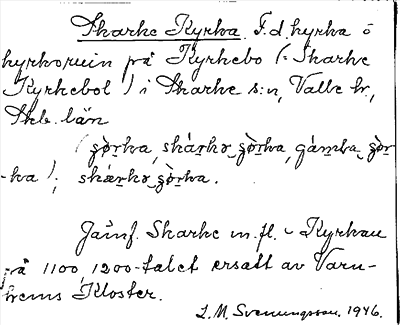 Skarke Kyrka. F.d. kyrka o
kyrkoruin på Kyrkebo (= Skarke
Kyrkebol) i Skarke s:n, Valle hr,
Skb. län
(ʒòrka, skàrkə ʒòrka, gàmka ʒòr-
-ka); skàrkə ʒòrka.
Jämf. Skarke m.fl. – Kyrkan
på 1100, 1200-talet ersatt av Varn-
hems Kloster.
L.M. Svenungsson. 1946.